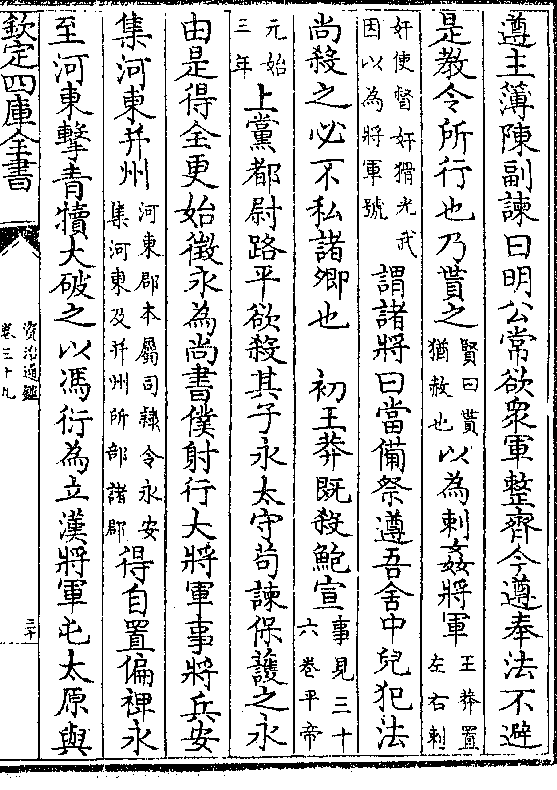 遵主簿陳副諫曰明公常欲衆軍整齊今遵奉法不避
是教令所行也乃貰之賢曰貰猶赦也以為刺姦將軍王莽置左右刺
奸使督奸猾光武因以為將軍號謂諸將曰當備祭遵吾舍中兒犯法
尚殺之必不私諸卿也 初王莽既殺鮑宣事見三十六卷平帝
元始三年上黨都尉路平欲殺其子永太守苟諫保護之永
由是得全更始徵永為尚書僕射行大將軍事將兵安
集河東并州河東郡本屬司隸令永安集河東及并州所部諸郡得自置偏裨永
至河東擊青犢大破之以馮衍為立漢將軍屯太原與
欽定四庫全書
資治通鑑
卷三十九
三十